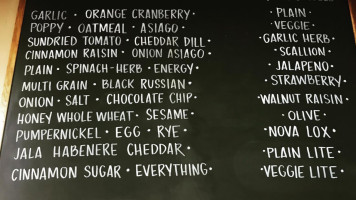 GARLIC • ORANGE CRANBERRY •
POPPY • OATMEAL • ASIAGO •
SUNDRIED TOMATO • CHEDDAR DILL •
CINNAMON RAISIN • ONION ASIAGO •
PLAIN • SPINACH-HERB • ENERGY •
MULTI GRAIN • BLACK RUSSIAN •
ONION • SALT • CHOCOLATE CHIP •
HONEY WHOLE WHEAT • SESAME •
PUMPERNICKEL • EGG • RYE •
JALA HABENERE CHEDDAR •
CINNAMON SUGAR • EVERYTHING •
• PLAIN •
• VEGGIE •
• GARLIC HERB •
• SCALLION •
• JALAPENO •
• STRAWBERRY •
• WALNUT RAISIN •
• OLIVE •
• NOVA LOX •
• PLAIN LITE •
• VEGGIE LITE •